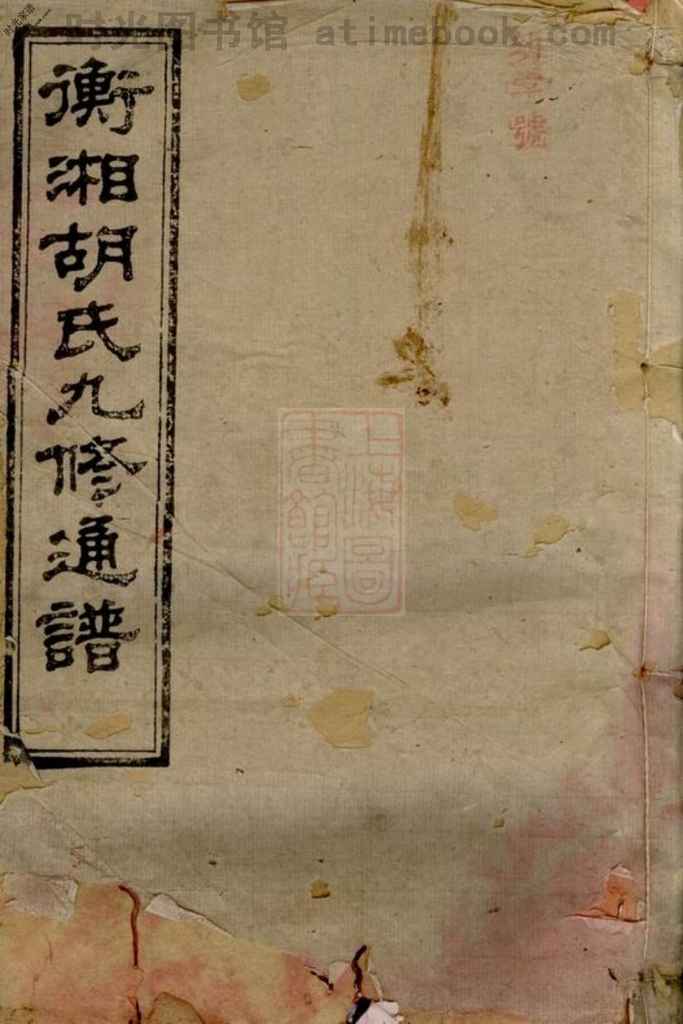 时光图书馆 atimebook.com
衡湘胡氏九修通譜
號
上海圖
書館藏